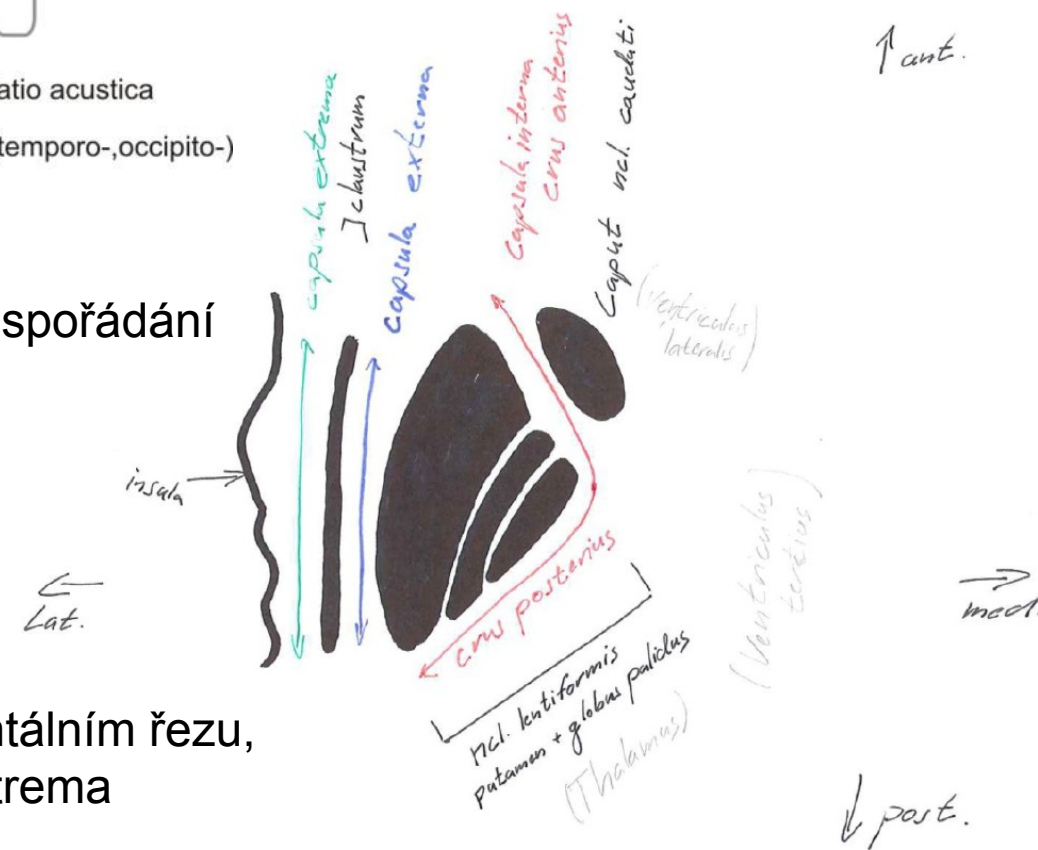 atio acustica
temporo-,occipito-)
spořádání
ntálním řezu,
trema
capsula extrema
claustrum
capsula externa
capsula interna
crus anterius
Caput ncl. caudati
(ventriculus
lateralis)
↑ ant.
insula
← Lat.
→ med.
crus posterius
ncl. lentiformis
putamen + globus palidus
(Thalamus)
(Ventriculus
tertius)
↓ post.